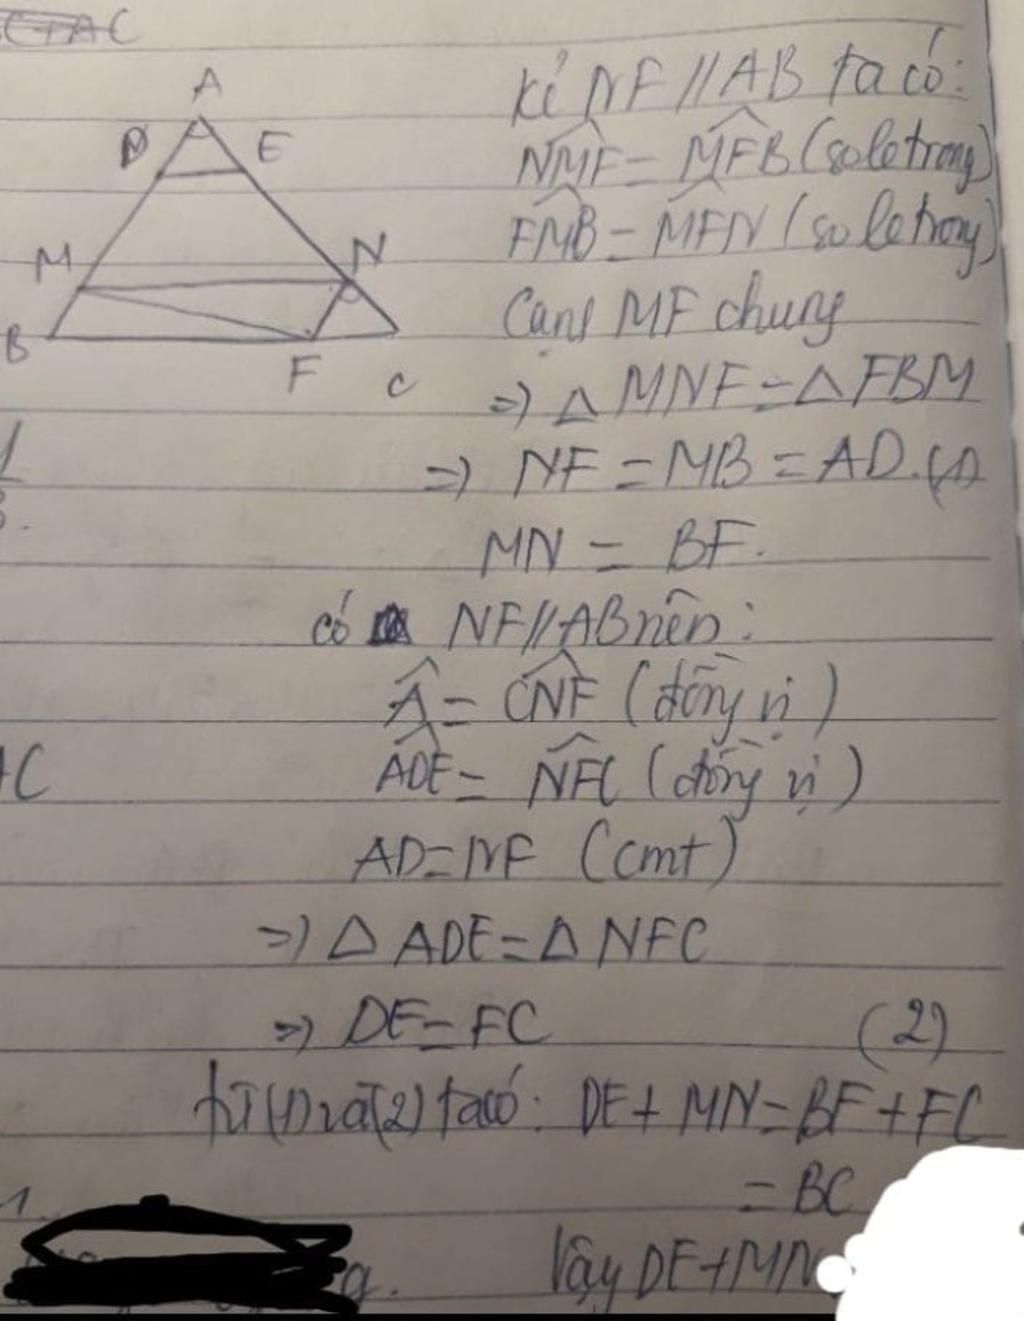 A
D E
M N
B
F C
AC
kẻ NF // AB ta có:
NMF = MFB (so le trong)
FMB = MFN (so le trong)
Cạnh MF chung
=> △ MNF = △ FBM
=> NF = MB = AD. (1)
MN = BF.
có NF // AB nên:
Â = CNF (đồng vị)
ADE = NFC (đồng vị)
AD = NF (cmt)
=> △ ADE = △ NFC
=> DE = FC (2)
từ (1) và (2) ta có: DE + MN = BF + FC
= BC
Vậy DE + MN